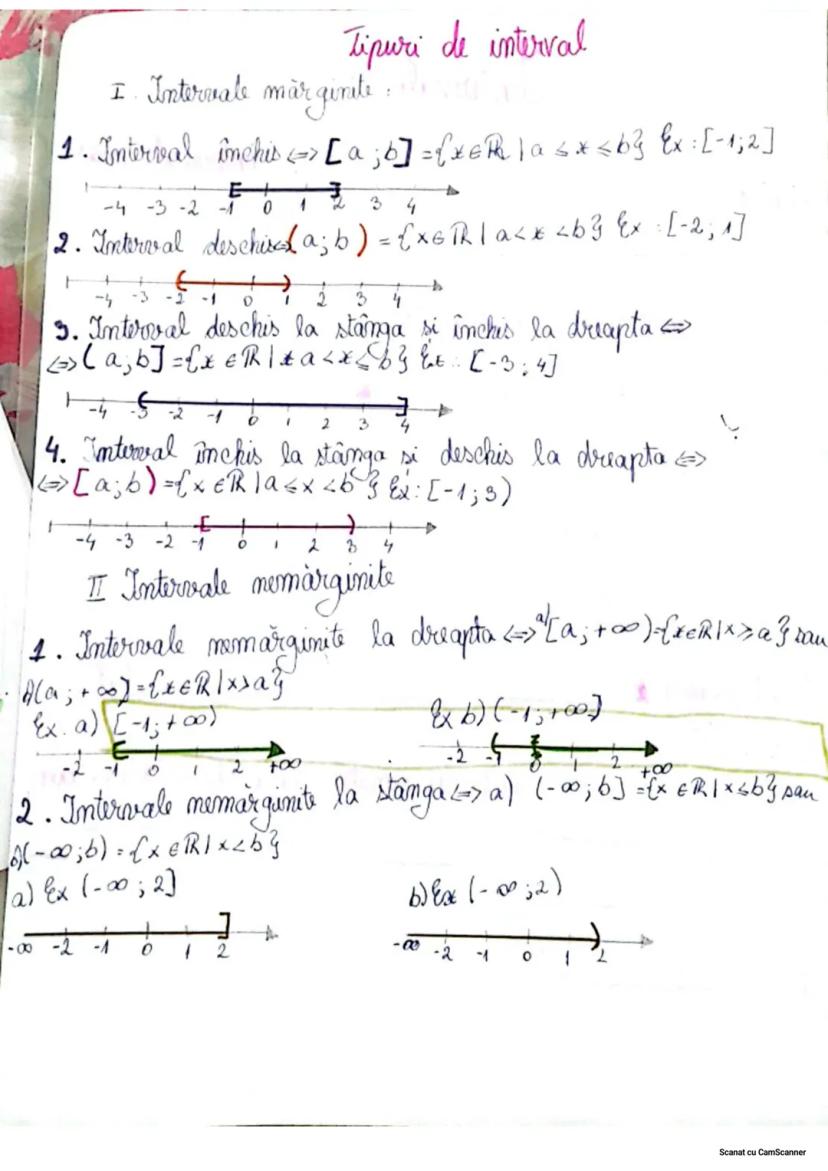 Tipuri de interval
I. Intervale mărginite:
1. Interval închis <=> [a;b] = {x ∈ ℝ | a ≤ x ≤ b} Ex: [-1;2]
-4 -3 -2 -1 0 1 2 3 4
2. Interval deschis <=> (a;b) = {x ∈ ℝ | a < x < b} Ex: [-2; 1]
-4 -3 -2 -1 0 1 2 3 4
3. Interval deschis la stânga si închis la dreapta <=>
<=> (a;b] = {x ∈ ℝ | a < x ≤ b} Ex: [-3; 4]
-4 -3 -2 -1 0 1 2 3 4
4. Interval închis la stânga si deschis la dreapta <=>
<=> [a;b) = {x ∈ ℝ | a ≤ x < b} Ex: [-1;3)
-4 -3 -2 -1 0 1 2 3 4
II Intervale nemărginite
1. Intervale nemărginite la dreapta <=> a) [a; +∞) = {x ∈ ℝ | x ≥ a} sau
b) (a; +∞] = {x ∈ ℝ | x > a}
Ex. a) [-1; +∞) Ex b) (-1; +∞]
-2 -1 0 1 2 +∞ -2 -1 0 1 2 +∞
2. Intervale nemărginite la stânga <=> a) (-∞; b] = {x ∈ ℝ | x ≤ b} sau
b) (-∞; b) = {x ∈ ℝ | x < b}
a) Ex (-∞; 2] b) Ex (-∞; 2)
-∞ -2 -1 0 1 2 -∞ -2 -1 0 1 2
Scanat cu CamScanner